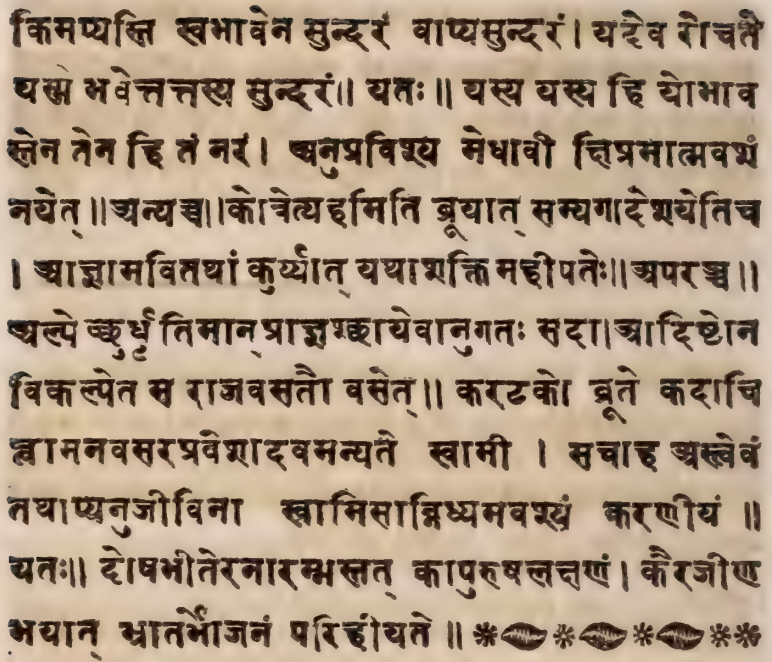 किमप्यस्ति स्वभावेन सुन्दरं वाप्यसुन्दरं। यदेव रोचते
यस्मै भवेत्तत्तस्य सुन्दरं॥ यतः॥ यस्य यस्य हि योभाव
स्तेन तेन हि तं नरं। अनुप्रविश्य मेधावी क्षिप्रमात्मवशं
नयेत्॥ अन्यच्च॥ कोत्रेत्यहमिति ब्रूयात् सम्यगादेशयेतिच
। आज्ञामवितथां कुर्य्यात् यथाशक्ति महीपतेः॥ अपरञ्च॥
अल्पेच्छुर्धृतिमान् प्राज्ञश्छायेवानुगतः सदा। आदिष्टोन
विकल्पेत स राजवसतौ वसेत्॥ करटको ब्रूते कदाचि
त्त्वामनवसरप्रवेशादवमन्यते स्वामी । सचाह अस्त्वेवं
तथाप्यनुजीविना स्वामिसान्निध्यमवश्यं करणीयं ॥
यतः॥ दोषभीतेरनारम्भस्तत् कापुरुषलक्षणं। कैरजीर्ण
भयात् भ्रातर्भोजनं परिहीयते ॥